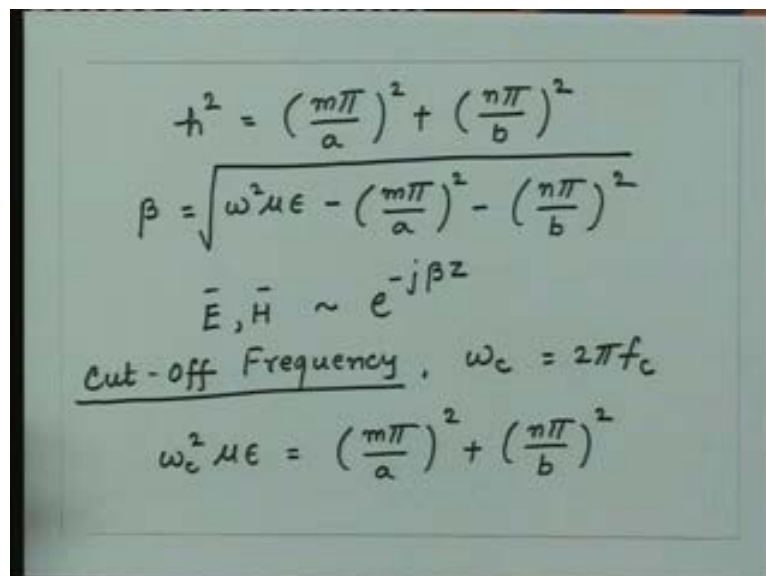 h² = (mπ/a)² + (nπ/b)²
β = √(ω²με - (mπ/a)² - (nπ/b)²)
Ē, H̄ ~ e^(-jβz)
Cut-off Frequency, ω_c = 2πf_c
ω_c²με = (mπ/a)² + (nπ/b)²